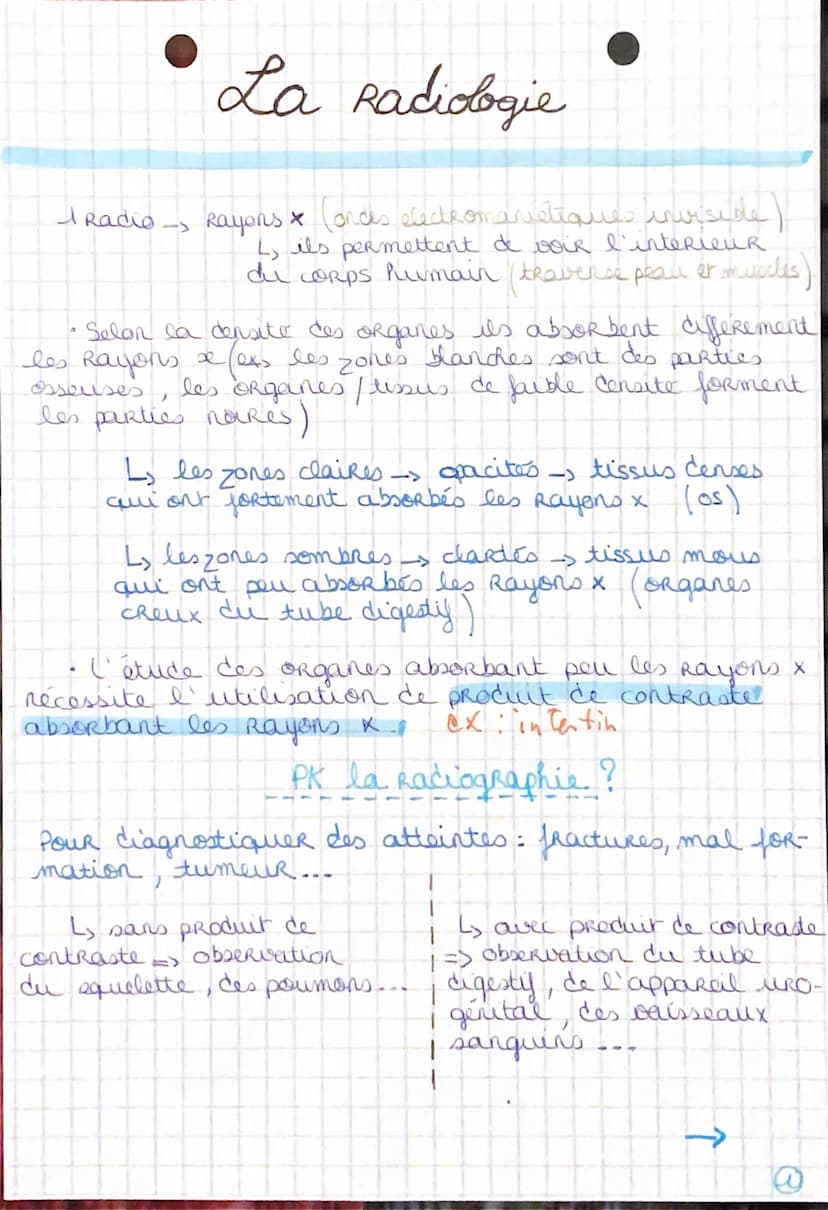 La Radiologie
1 Radio → Rayons x (ondes electromaniétiques invisible)
↳ ils permettent de voir l'interieur
du corps humain (traverse peau et muscles)
• Selon la densité des organes ils absorbent differement
les Rayons x (ex, les zones blanches sont des parties
osseuses, les organes / tissus de faible densité forment
les parties noires)
↳ les zones claires → opacités → tissus denses
qui ont fortement absorbés les Rayons x (os)
↳ les zones sombres → clartés → tissus mous
qui ont peu absorbés les Rayons x (organes
creux du tube digestif)
• L'étude des organes absorbant peu les rayons x
nécessite l'utilisation de produit de contraste
absorbant les Rayons x. ex : intentin
PK la radiographie ?
Pour diagnostiquer des atteintes : fractures, mal for-
mation, tumeur...
↳ sans produit de
contraste => observation
du squelette, des poumons...
↳ avec produit de contraste
=> observation du tube
digestif, de l'appareil uro-
génital, des vaisseaux
sanguins ...
→
1